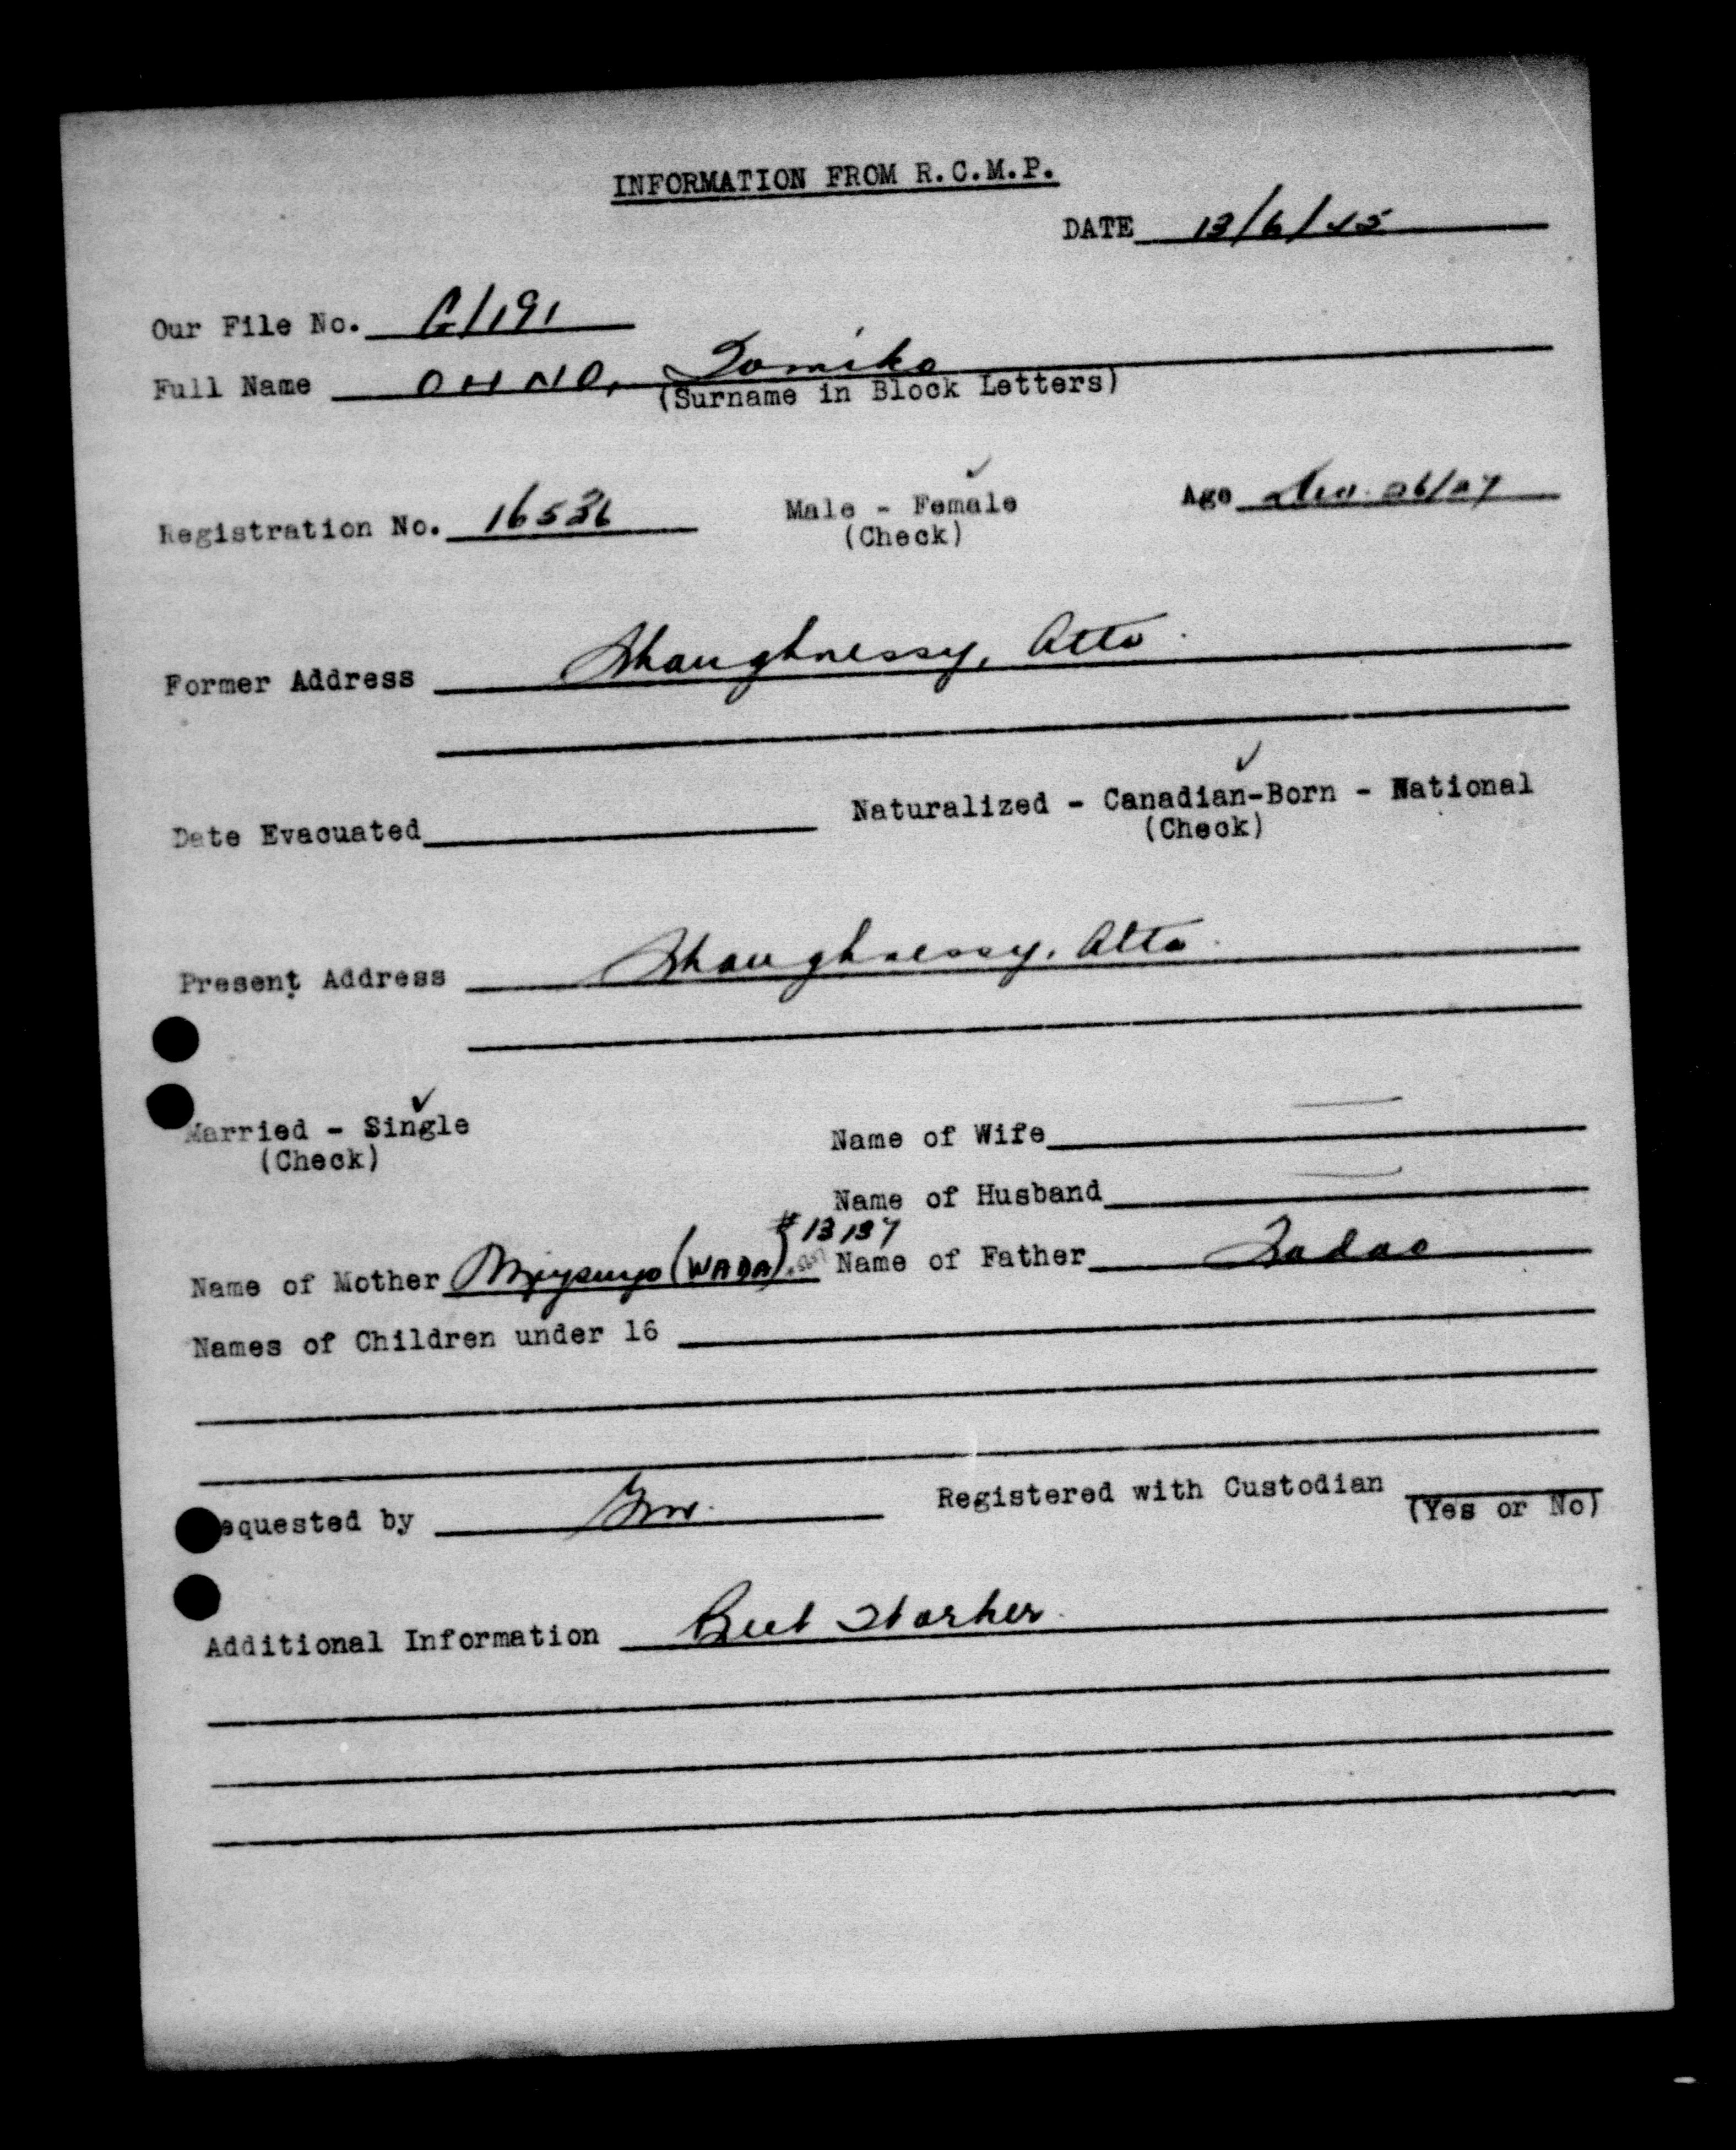 INFORMATION FROM R.C.M.P.
DATE 13/6/45
Our File No. G/191
Full Name OHNO, Tomiko
(Surname in Block Letters)
✓
Registration No. 16536 Male - Female Age 26/27
(Check)
Former Address Shaughnessy, Alta.
✓
Date Evacuated Naturalized - Canadian-Born - National
(Check)
Present Address Shaughnessy, Alta.
✓
Married - Single Name of Wife —
(Check)
Name of Husband —
#13137
Name of Mother (WADA) Name of Father Tadao
Names of Children under 16
equested by Registered with Custodian
(Yes or No)
Additional Information Beet Worker.